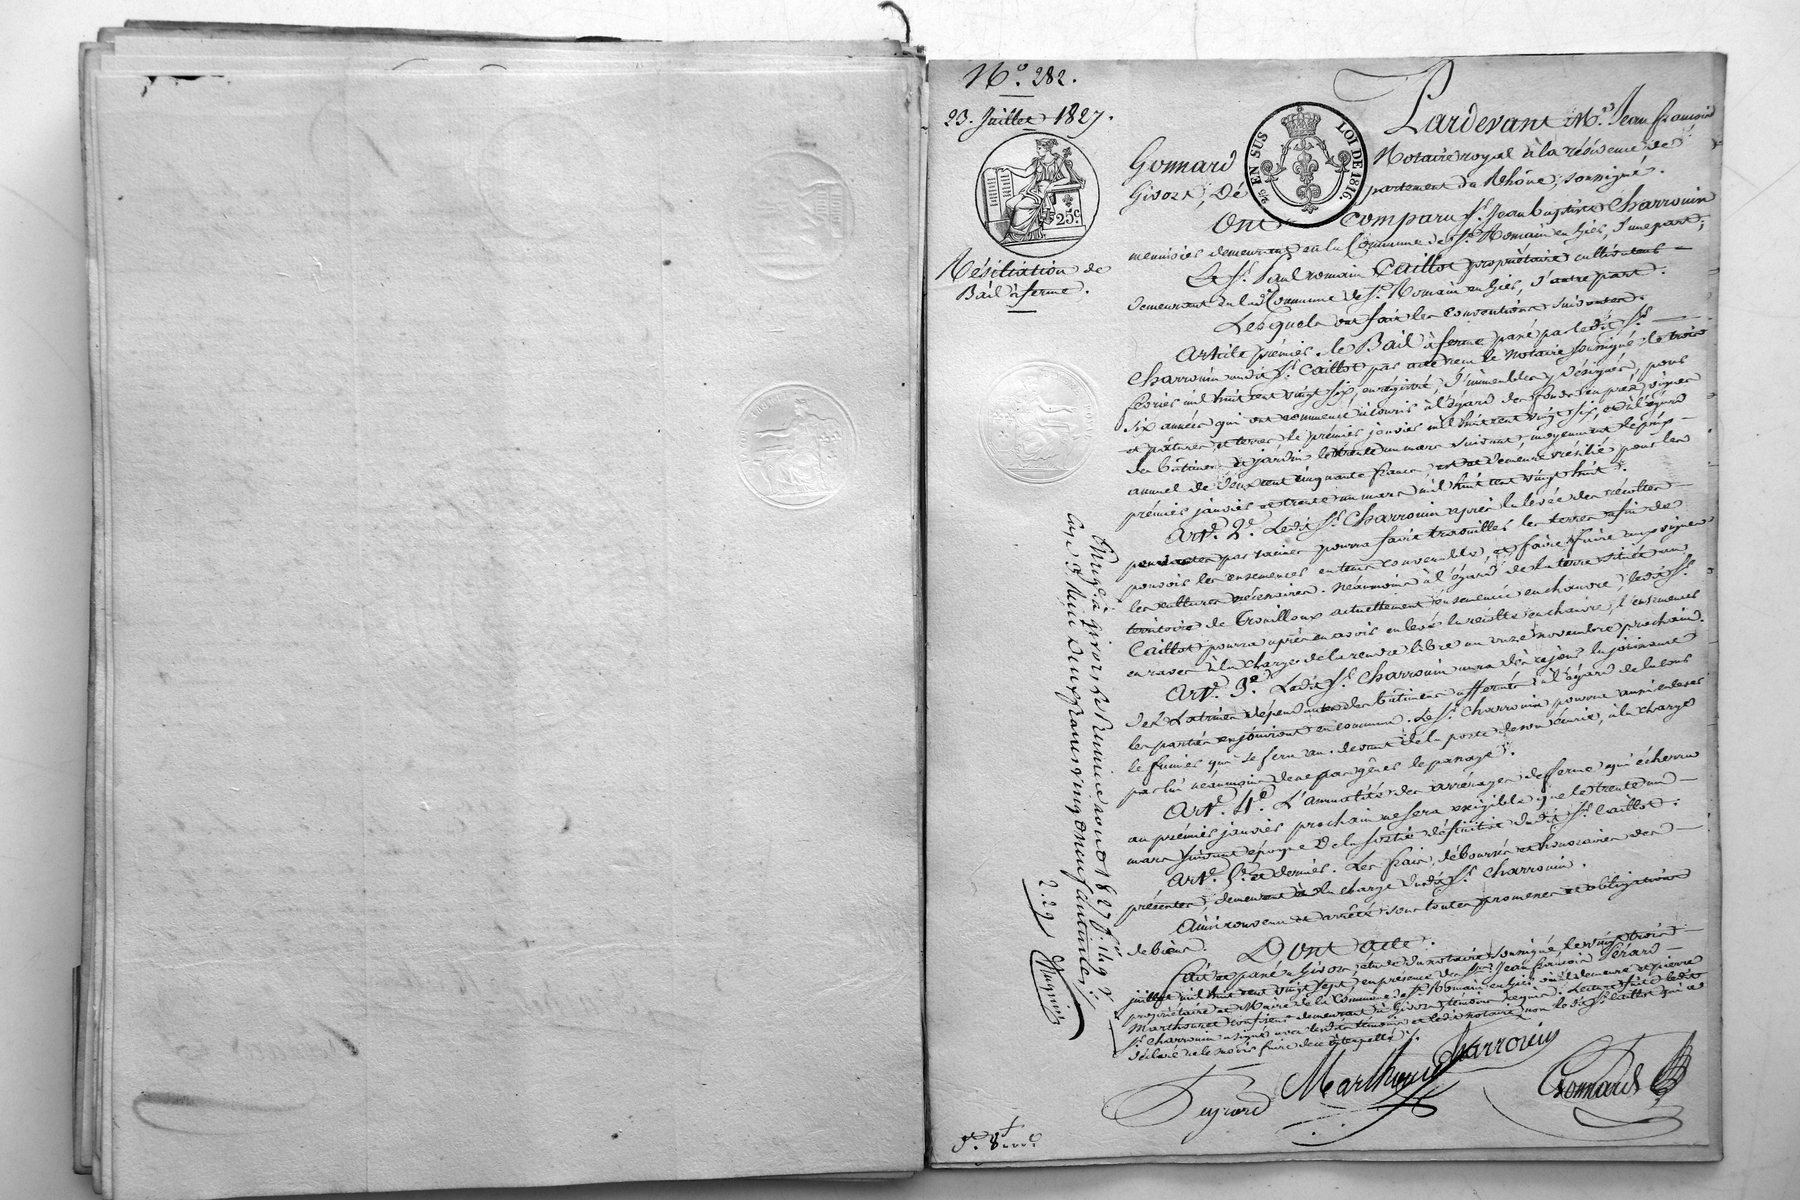 N.º 282.
23. Juillet 1827.
25.c
Résiliation de
Bail à ferme.
Pardevant M.e Jean françois
Gonnard Notaire royal à la résidence de
Givors, Département du Rhône, soussigné.
25 EN SUS LOI DE 1816.
Ont Comparu S.r Jean baptiste Charrouin
menuisier demeurant en la Commune de S.t Romain en Giés, d'une part;
Et S.r Paul romain Caillot propriétaire cultivateur
demeurant en lad.e Commune de S.t Romain en Giés, d'autre part.
Lesquels ont fait les Conventions suivantes.
Article prémier. Le Bail à ferme passé par ledit S.r
Charrouin audit S.r Caillot par acte reçu le Notaire soussigné le trois
février mil huit cent vingt six, enregistré, d'immeubles y désignés, pour
six années qui ont commencé à courir à l'égard des fonds en pré, vignes
et pâtures et terres le prémier janvier mil huit cent vingt six, et à l'égard
des bâtimens et jardin le trente un mars suivant, moyennant le prix
annuel de deux cent cinquante francs est et demeure résilié pour les
prémier janvier et trente un mars mil huit cent vingt huit.
Art.e 2.e Ledit S.r Charrouin après la levée des récoltes
pendantes par racines pourra faire travailler les terres afin de
pouvoir les ensemencer en tems convenable, et faire faire aux vignes
les cultures nécessaires. Néanmoins à l'égard de la terre située au
territoire de Trouilloux actuellement ensemencée en chanvre, ledit S.r
Caillot pourra après en avoir enlevé la récolte en chanvre, l'ensemencer
en raves à la charge de la rendre libre au onze novembre prochain.
Art.e 3.e Ledit S.r Charrouin aura dès ce jour la jouissance
des Latrines dépendantes des bâtimens affermés; à l'égard de la cour
les parties en jouiront en commun. Le S.r Charrouin pourra aussi enlever
le fumier qui se fera au devant de la porte de son écurie, à la charge
par lui néanmoins de ne pas gêner le passage.
Art.e 4.e L'annuité des arrérages de ferme qui écherra
au prémier janvier prochain ne sera exigible que le trente un
mars suivant époque de la sortie définitive dudit S.r Caillot.
Art.e 5.e et dernier. Les frais, déboursés et honoraires des
présentes, demeurent à la charge dudit S.r Charrouin.
Ainsi convenu et arrêté sous toutes promesses et obligations
de biens. Dont acte.
Fait et passé à Givors, étude du notaire soussigné, le vingt trois
juillet mil huit cent vingt sept, en présence des S.rs Jean françois Peirard
propriétaire et Maire de la Commune de S.t Romain en Giés où il demeure et pierre
Marthouret demeurant à Givors, témoins requis. Lecture faite ledit
S.r Charrouin a signé avec lesdits témoins et ledit notaire non ledit S.r Caillot qui a
déclaré ne le savoir faire de ce interpellé.
Peyrard Marthouret Charrouin Gonnard
Enreg.é à givors le 1827 f.o
reçu deux francs vingt neuf centimes.
2.29